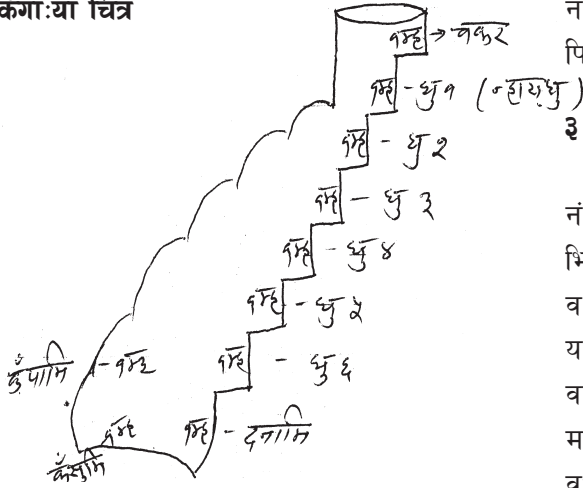 कगाःया चित्र
१म्ह → चकर
१म्ह - धु १ (न्हायधु)
१म्ह - धु २
१म्ह - धु ३
१म्ह - धु ४
१म्ह - धु ५
१म्ह - धु ६
कुँपामि - १म्ह
१म्ह - दनामि
१म्ह
कुँसुमि
न
पि
३
नं
भि
व
य
व
म
व